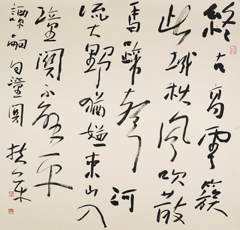 終古高雲簇
此城秋風吹散
馬蹄聲河
流大野猶嫌束山入
潼關不解平
譚嗣同句潼關